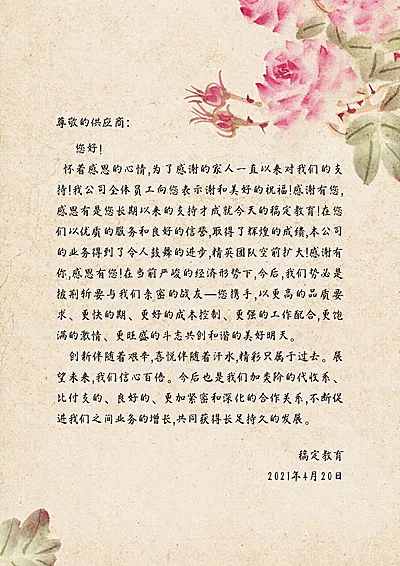 尊敬的供应商:
您好!
怀着感恩的心情,为了感谢的家人一直以来对我们的支
持!我公司全体员工向您表示谢和美好的祝福!感谢有您,
感恩有是您长期以来的支持才成就今天的稿定教育!在您
们以优质的服务和良好的信誉,取得了辉煌的成绩,本公司
的业务得到了令人鼓舞的进步,精英团队空前扩大!感谢有
你,感恩有您!在当前严峻的经济形势下,今后,我们势必是
披荆斩要与我们亲密的战友—您携手,以更高的品质要
求、更快的期、更好的成本控制、更强的工作配合,更饱
满的激情、更旺盛的斗志共创和谐的美好明天。
创新伴随着艰辛,喜悦伴随着汗水,精彩只属于过去。展
望未来,我们信心百倍。今后也是我们加类阶的代收系、
比付支的、良好的、更加紧密和深化的合作关系,不断促
进我们之间业务的增长,共同获得长足持久的发展。
稿定教育
2021年4月20日